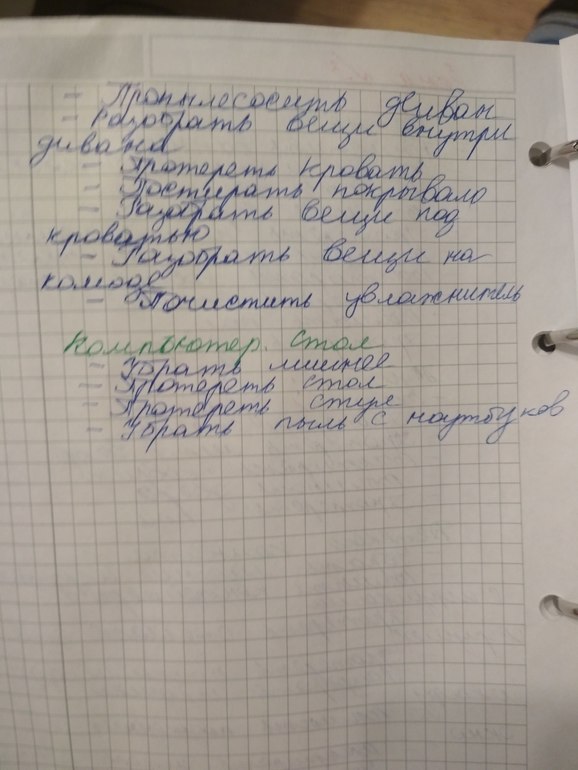 - Пропылесосить диван
- Разобрать вещи внутри
дивана
- Протереть кровать
- Постирать покрывало
- Разобрать вещи под
кроватью
- Разобрать вещи на
комоде
- Почистить увлажнитель
Компьютер. стол
- Убрать лишнее
- Протереть стол
- Протереть стул
- Убрать пыль с ноутбуков